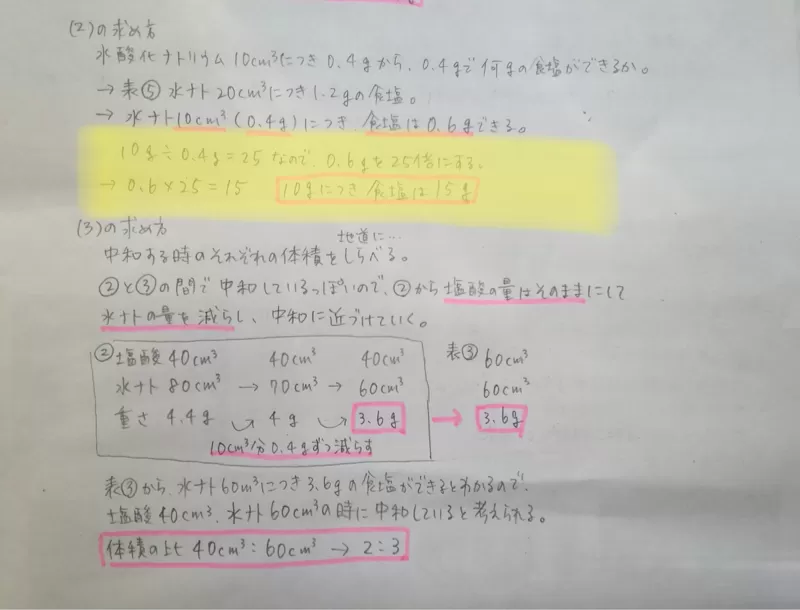 (2)の求め方
水酸化ナトリウム10cm³につき0.4gから、0.4gで何gの食塩ができるか。
→ 表⑤ 水ナト20cm³につき1.2gの食塩。
→ 水ナト10cm³(0.4g)につき、食塩は0.6gできる。
10g÷0.4g=25なので、0.6gを25倍にする。
→ 0.6×25=15 10gにつき食塩は15g
(3)の求め方
地道に…
中和する時のそれぞれの体積をしらべる。
②と③の間で中和しているっぽいので、②から塩酸の量はそのままにして
水ナトの量を減らし、中和に近づけていく。
②塩酸40cm³ 40cm³ 40cm³ 表③ 60cm³
水ナト80cm³ → 70cm³ → 60cm³ 60cm³
重さ 4.4g 4g 3.6g → 3.6g
10cm³分0.4gずつ減らす
表③から、水ナト60m³につき3.6gの食塩ができるとわかるので、
塩酸40cm³、水ナト60cm³の時に中和していると考えられる。
体積の比 40cm³:60cm³ → 2:3